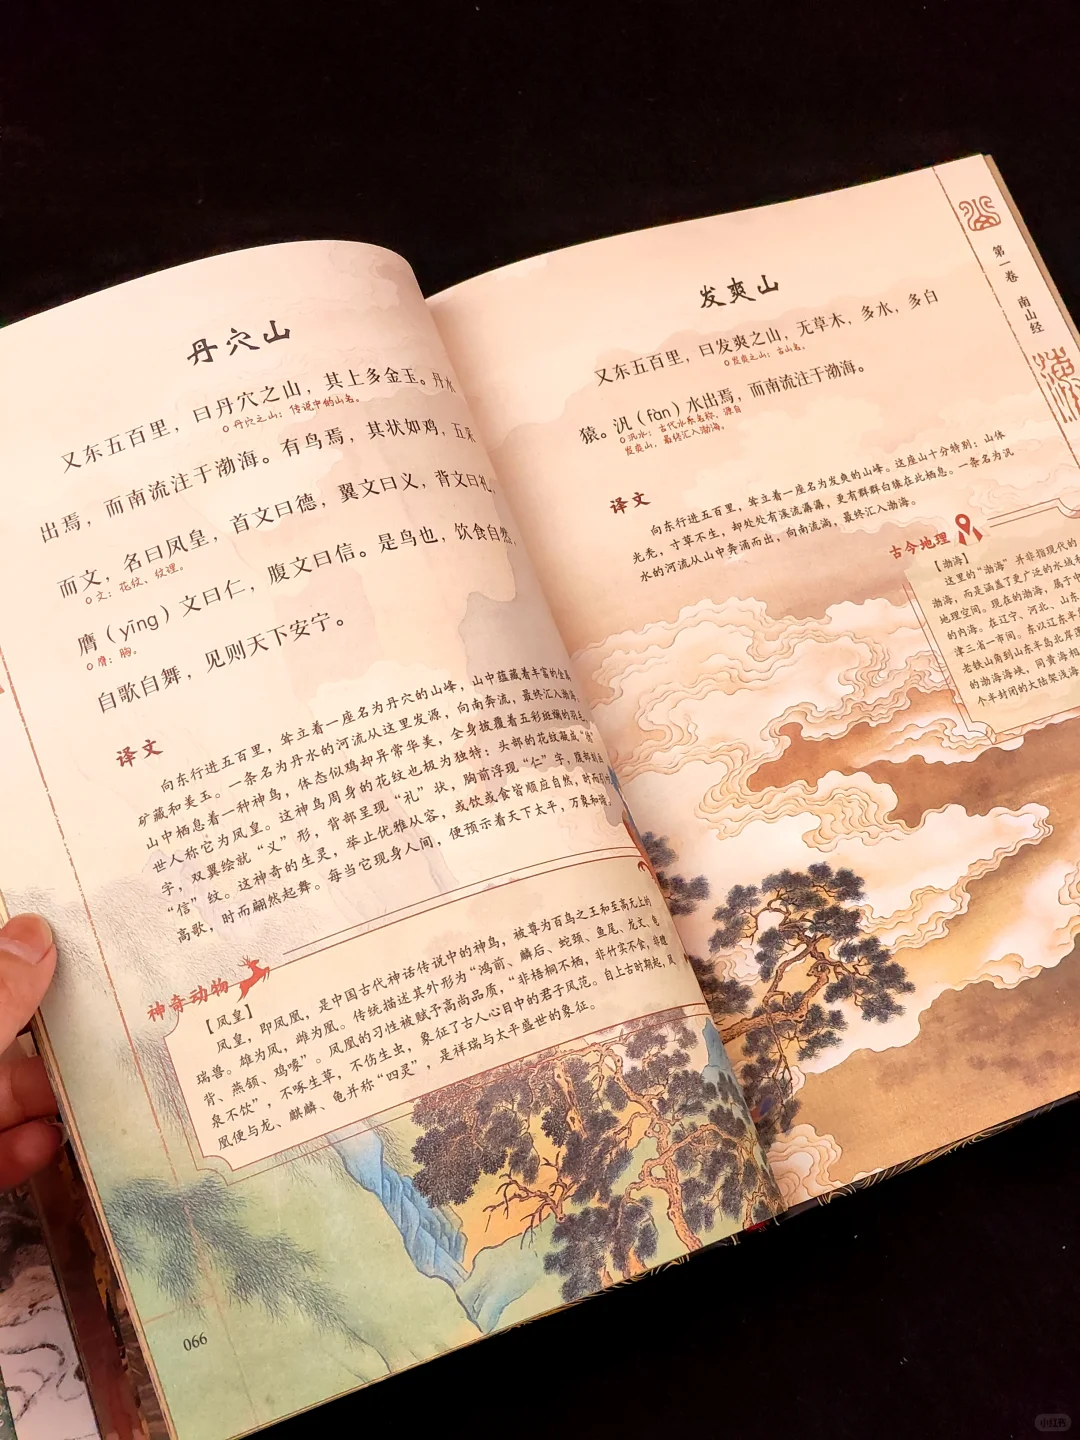 丹穴山
又东五百里，曰丹穴之山，其上多金玉。丹水
丹穴之山：传说中的山名。
出焉，而南流注于渤海。有鸟焉，其状如鸡，五采
而文，名曰凤皇，首文曰德，翼文曰义，背文曰礼，
文：花纹、纹理。
膺（yīng）文曰仁，腹文曰信。是鸟也，饮食自然，
膺：胸。
自歌自舞，见则天下安宁。
译文
向东行进五百里，耸立着一座名为丹穴的山峰，山中蕴藏着丰富的金属
矿藏和美玉。一条名为丹水的河流从这里发源，向南奔流，最终汇入渤海。
山中栖息着一种神鸟，体态似鸡却异常华美，全身披覆着五彩斑斓的羽毛，
世人称它为凤皇。这神鸟周身的花纹也极为独特：头部的花纹凝成“德”
字，双翼绘就“义”形，背部呈现“礼”状，胸前浮现“仁”字，腹部刻画
“信”纹。这神奇的生灵，举止优雅从容，或饮或食皆顺应自然，时而引吭
高歌，时而翩然起舞。每当它现身人间，便预示着天下太平，万象和谐。
神奇动物
【凤皇】
凤皇，即凤凰，是中国古代神话传说中的神鸟，被尊为百鸟之王和至高无上的
瑞兽。雄为凤，雌为凰。传统描述其外形为“鸿前、麟后、蛇颈、鱼尾、龙文、龟
背、燕颔、鸡喙”。凤凰的习性被赋予高尚品质，“非梧桐不栖，非竹实不食，非醴
泉不饮”，不啄生草，不伤生虫，象征了古人心目中的君子风范。自上古时期起，凤
凰便与龙、麒麟、龟并称“四灵”，是祥瑞与太平盛世的象征。
066
发爽山
又东五百里，曰发爽之山，无草木，多水，多白
发爽之山：古山名。
猿。汎（fàn）水出焉，而南流注于渤海。
汎水：古代水系名称，源自
发爽山，最终汇入渤海。
译文
向东行进五百里，耸立着一座名为发爽的山峰。这座山十分特别：山体
光秃，寸草不生，却处处有溪流潺潺，更有群群白猿在此栖息。一条名为汎
水的河流从山中奔涌而出，向南流淌，最终汇入渤海。
古今地理
【渤海】
这里的“渤海”并非指现代的
渤海，而是涵盖了更广泛的水域和
地理空间。现在的渤海，属于中
的内海。在辽宁、河北、山东
津三省一市间。东以辽东半
老铁山角到山东半岛北岸
的渤海海峡，同黄海相
个半封闭的大陆架浅海
第一卷 南山经
山
海
小红书